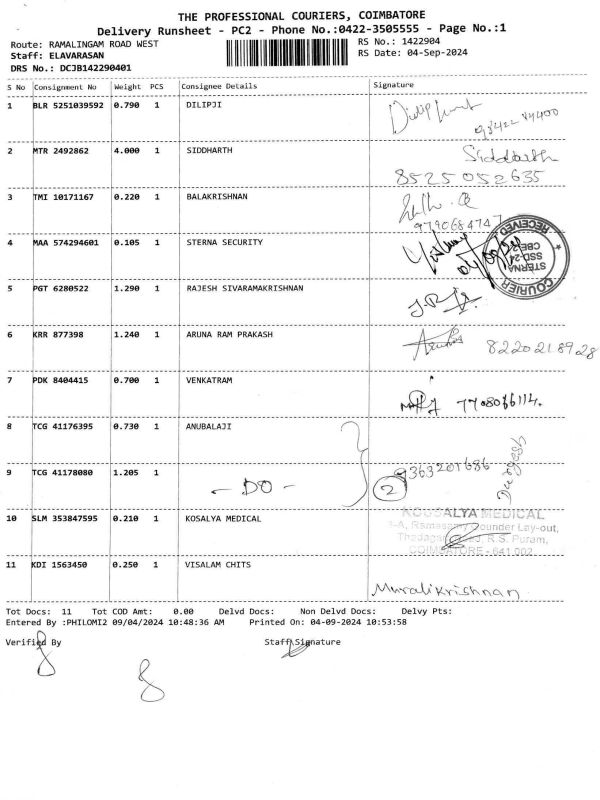 THE PROFESSIONAL COURIERS, COIMBATORE
Delivery Runsheet - PC2 - Phone No.:0422-3505555 - Page No.:1
Route: RAMALINGAM ROAD WEST
Staff: ELAVARASAN
DRS No.: DCJB142290401
RS No.: 1422904
RS Date: 04-Sep-2024
S No Consignment No Weight PCS Consignee Details Signature
1 BLR 5251039592 0.790 1 DILIPJI
2 MTR 2492862 4.000 1 SIDDHARTH Siddharth
8525052635
3 TMI 10171167 0.220 1 BALAKRISHNAN
9790684747
4 MAA 574294601 0.105 1 STERNA SECURITY
RECEIVED
STERNA
SSD-24
CBE-2
COURIER
5 PGT 6280522 1.290 1 RAJESH SIVARAMAKRISHNAN
6 KRR 877398 1.240 1 ARUNA RAM PRAKASH 8220218928
7 PDK 8404415 0.700 1 VENKATRAM
7708066114.
8 TCG 41176395 0.730 1 ANUBALAJI
9 TCG 41178080 1.205 1
- DO -
2
9363201686
10 SLM 353847595 0.210 1 KOSALYA MEDICAL
KOUSALYA MEDICAL
Lay-out,
R.S. Puram,
COIMBATORE - 641 002
11 KDI 1563450 0.250 1 VISALAM CHITS
Muralikrishnan
Tot Docs: 11 Tot COD Amt: 0.00 Delvd Docs: Non Delvd Docs: Delvy Pts:
Entered By :PHILOMI2 09/04/2024 10:48:36 AM Printed On: 04-09-2024 10:53:58
Verified By Staff Signature